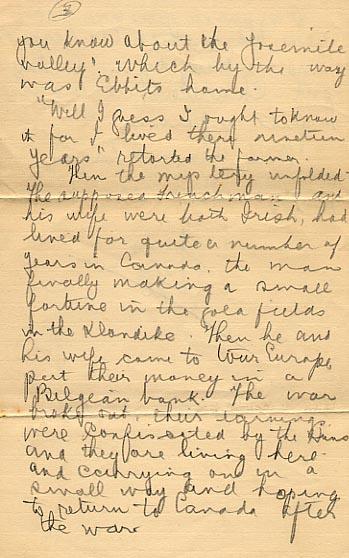 3
you know about the Yosemite
valley", which by the way
was Ebbits home.
"Well I guess I ought to know
it for I lived there nineteen
years" retorted the farmer.
Then the mystery unfolded.
The supposed Frenchman and
his wife were both Irish, had
lived for quite a number of
years in Canada, the man
finally making a small
fortune in the gold fields
in the Klondike. Then he and
his wife came to tour Europe,
put their money in a
Belgean bank. The war
broke out, their earnings
were confiscated by the Huns
and they are living here
and carrying on in a
small way and hoping
to return to Canada after
the war